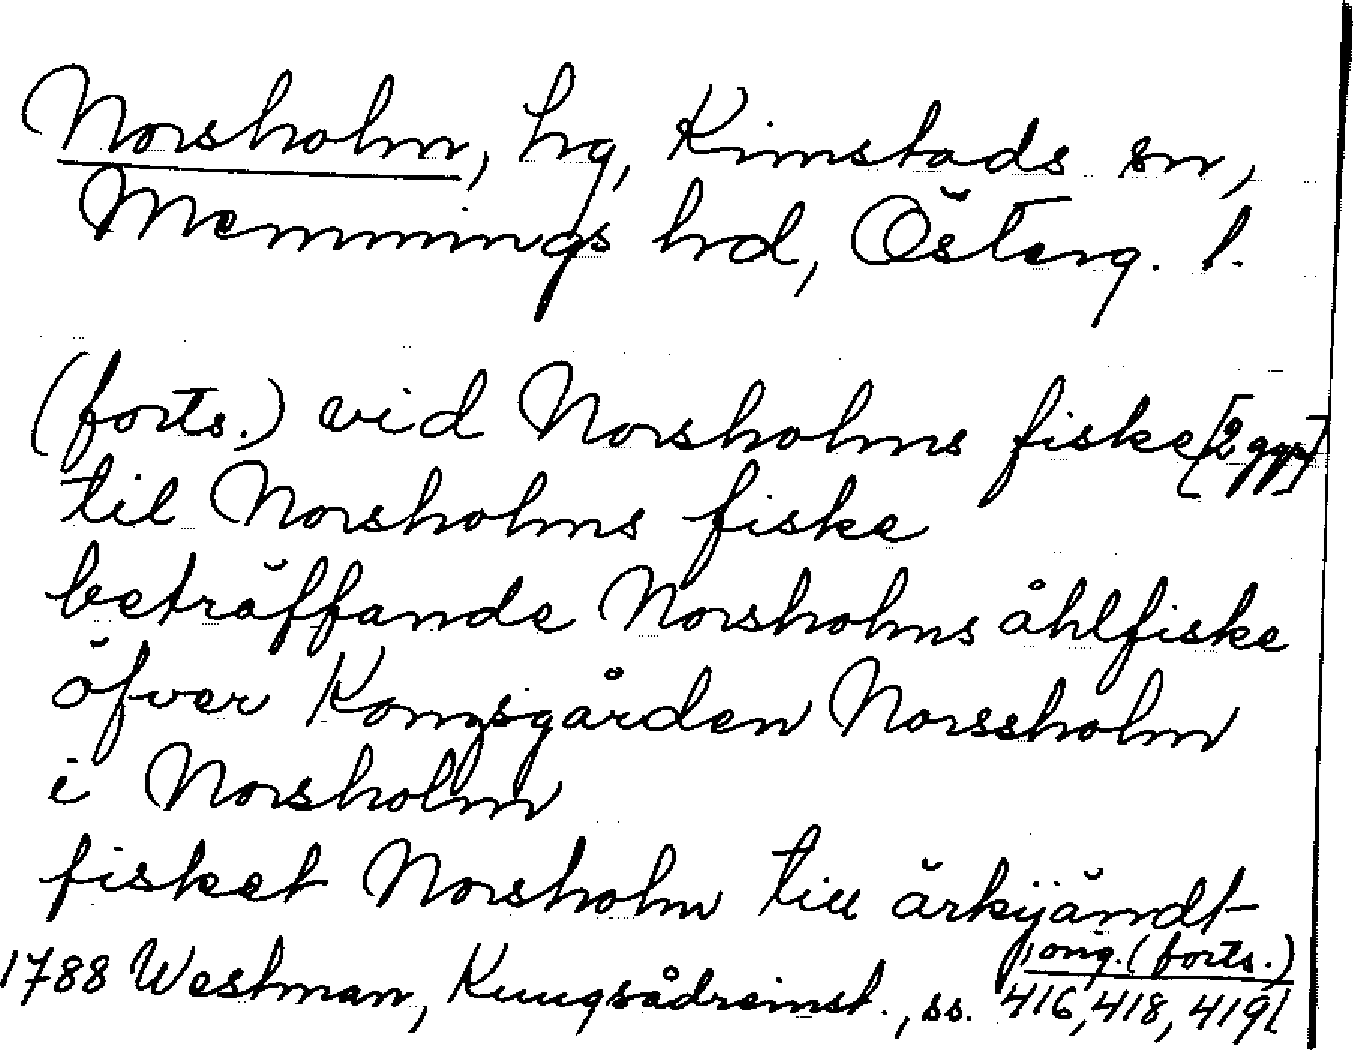 Norsholm, hg, Kimstads sn,
Memmings hd, Österg. l.
(forts.) vid Norsholms fiske [2 ggr]
til Norsholms fiske
beträffande Norsholms åhlfiske
öfver Kongsgården Norssholm
i Norsholm
fisket Norsholm till ärkjändt
orig. (forts.)
1788 Westman, Kungsådreinst., ss. 416, 418, 419